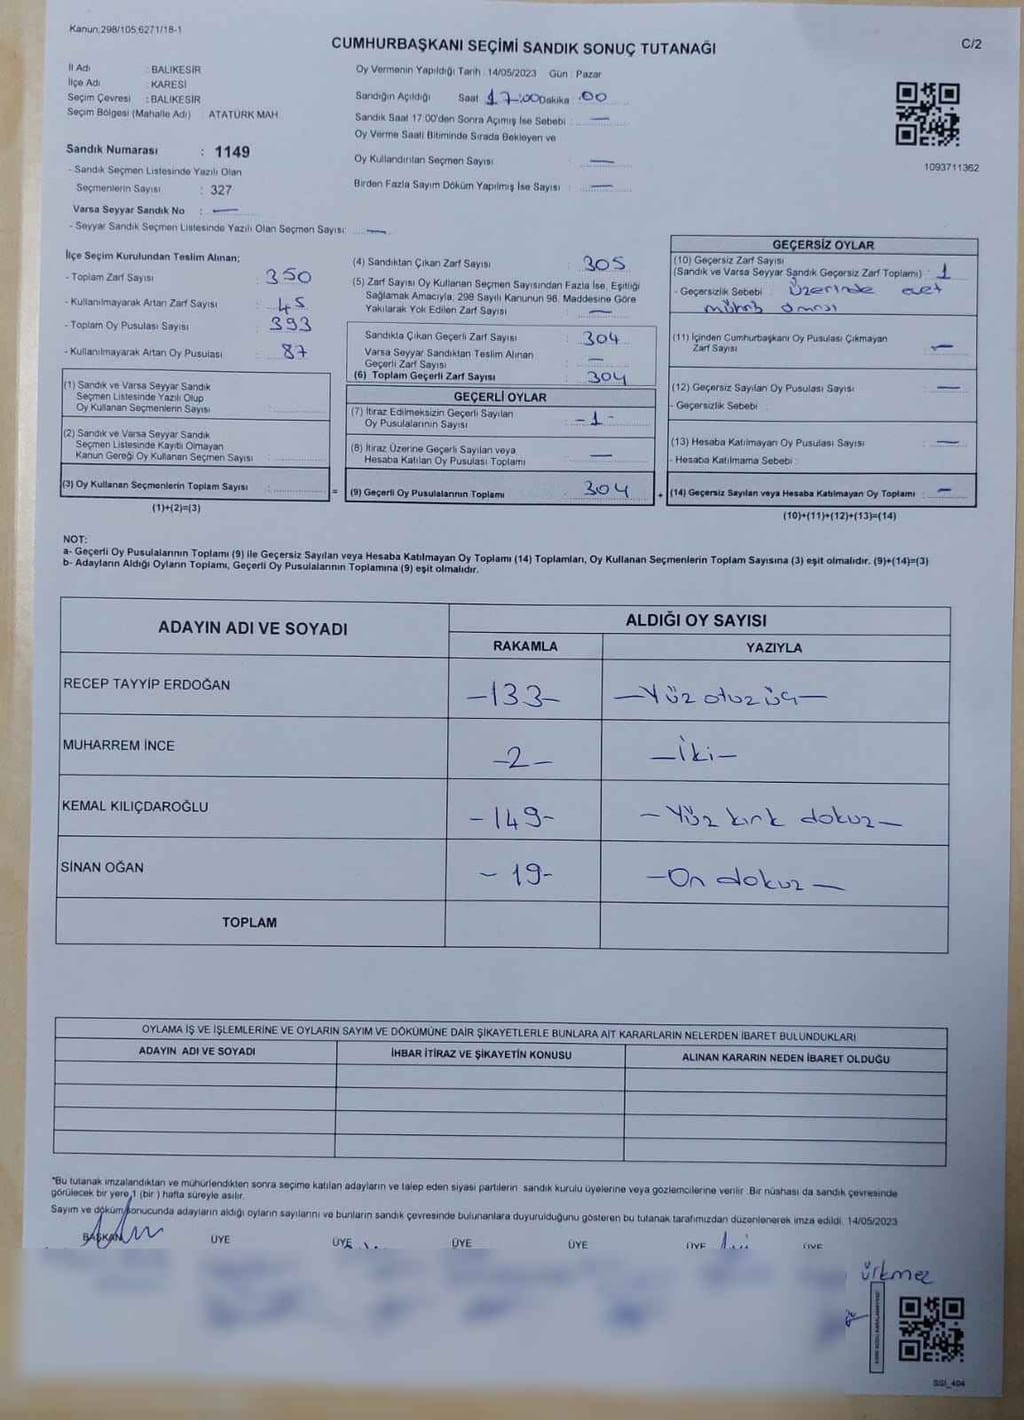 Kanun:298/105;6271/18-1
C/2
CUMHURBAŞKANI SEÇİMİ SANDIK SONUÇ TUTANAĞI
İl Adı : BALIKESİR
İlçe Adı : KARESİ
Seçim Çevresi : BALIKESİR
Seçim Bölgesi (Mahalle Adı) ATATÜRK MAH.
Sandık Numarası : 1149
- Sandık Seçmen Listesinde Yazılı Olan
Seçmenlerin Sayısı : 327
Varsa Seyyar Sandık No : —
- Seyyar Sandık Seçmen Listesinde Yazılı Olan Seçmen Sayısı: —
Oy Vermenin Yapıldığı Tarih : 14/05/2023 Gün : Pazar
Sandığın Açıldığı Saat 17:00 Dakika :00
Sandık Saat 17.00'den Sonra Açmış İse Sebebi : —
Oy Verme Saati Bitiminde Sırada Bekleyen ve
Oy Kullandırılan Seçmen Sayısı : —
Birden Fazla Sayım Döküm Yapılmış İse Sayısı : —
1093711362
İlçe Seçim Kurulundan Teslim Alınan;
- Toplam Zarf Sayısı : 350
- Kullanılmayarak Artan Zarf Sayısı : 45
- Toplam Oy Pusulası Sayısı : 393
- Kullanılmayarak Artan Oy Pusulası : 87
(1) Sandık ve Varsa Seyyar Sandık
Seçmen Listesinde Yazılı Olup
Oy Kullanan Seçmenlerin Sayısı :
(2) Sandık ve Varsa Seyyar Sandık
Seçmen Listesinde Kayıtlı Olmayan
Kanun Gereği Oy Kullanan Seçmen Sayısı :
(3) Oy Kullanan Seçmenlerin Toplam Sayısı :
(1)+(2)=(3)
=
(4) Sandıktan Çıkan Zarf Sayısı : 305
(5) Zarf Sayısı Oy Kullanan Seçmen Sayısından Fazla İse, Eşitliği
Sağlamak Amacıyla, 298 Sayılı Kanunun 98. Maddesine Göre
Yakılarak Yok Edilen Zarf Sayısı : —
Sandıkta Çıkan Geçerli Zarf Sayısı : 304
Varsa Seyyar Sandıktan Teslim Alınan
Geçerli Zarf Sayısı : —
(6) Toplam Geçerli Zarf Sayısı : 304
GEÇERLİ OYLAR
(7) İtiraz Edilmeksizin Geçerli Sayılan
Oy Pusulalarının Sayısı : -1-
(8) İtiraz Üzerine Geçerli Sayılan veya
Hesaba Katılan Oy Pusulası Toplamı : —
(9) Geçerli Oy Pusulalarının Toplamı : 304
+
GEÇERSİZ OYLAR
(10) Geçersiz Zarf Sayısı
(Sandık ve Varsa Seyyar Sandık Geçersiz Zarf Toplamı) : 1
- Geçersizlik Sebebi : Üzerinde evet
mührü olması
(11) İçinden Cumhurbaşkanı Oy Pusulası Çıkmayan
Zarf Sayısı : —
(12) Geçersiz Sayılan Oy Pusulası Sayısı : —
- Geçersizlik Sebebi :
(13) Hesaba Katılmayan Oy Pusulası Sayısı : —
- Hesaba Katılmama Sebebi :
(14) Geçersiz Sayılan veya Hesaba Katılmayan Oy Toplamı : —
(10)+(11)+(12)+(13)=(14)
NOT:
a- Geçerli Oy Pusulalarının Toplamı (9) ile Geçersiz Sayılan veya Hesaba Katılmayan Oy Toplamı (14) Toplamları, Oy Kullanan Seçmenlerin Toplam Sayısına (3) eşit olmalıdır. (9)+(14)=(3)
b- Adayların Aldığı Oyların Toplamı, Geçerli Oy Pusulalarının Toplamına (9) eşit olmalıdır.
ADAYIN ADI VE SOYADI
ALDIĞI OY SAYISI
RAKAMLA YAZIYLA
RECEP TAYYİP ERDOĞAN -133- -Yüz otuz üç-
MUHARREM İNCE -2- -İki-
KEMAL KILIÇDAROĞLU -149- -Yüz kırk dokuz-
SİNAN OĞAN -19- -On dokuz-
TOPLAM
OYLAMA İŞ VE İŞLEMLERİNE VE OYLARIN SAYIM VE DÖKÜMÜNE DAİR ŞİKAYETLERLE BUNLARA AİT KARARLARIN NELERDEN İBARET BULUNDUKLARI
ADAYIN ADI VE SOYADI İHBAR İTİRAZ VE ŞİKAYETİN KONUSU ALINAN KARARIN NEDEN İBARET OLDUĞU
*Bu tutanak imzalandıktan ve mühürlendikten sonra seçime katılan adayların ve talep eden siyasi partilerin sandık kurulu üyelerine veya gözlemcilerine verilir. Bir nüshası da sandık çevresinde
görülecek bir yere 1 (bir ) hafta süreyle asılır.
Sayım ve döküm sonucunda adayların aldığı oyların sayılarını ve bunların sandık çevresinde bulunanlara duyurulduğunu gösteren bu tutanak tarafımızdan düzenlenerek imza edildi. 14/05/2023
BAŞKAN ÜYE ÜYE ÜYE ÜYE ÜYE ÜYE
ürkmez
SSI_404